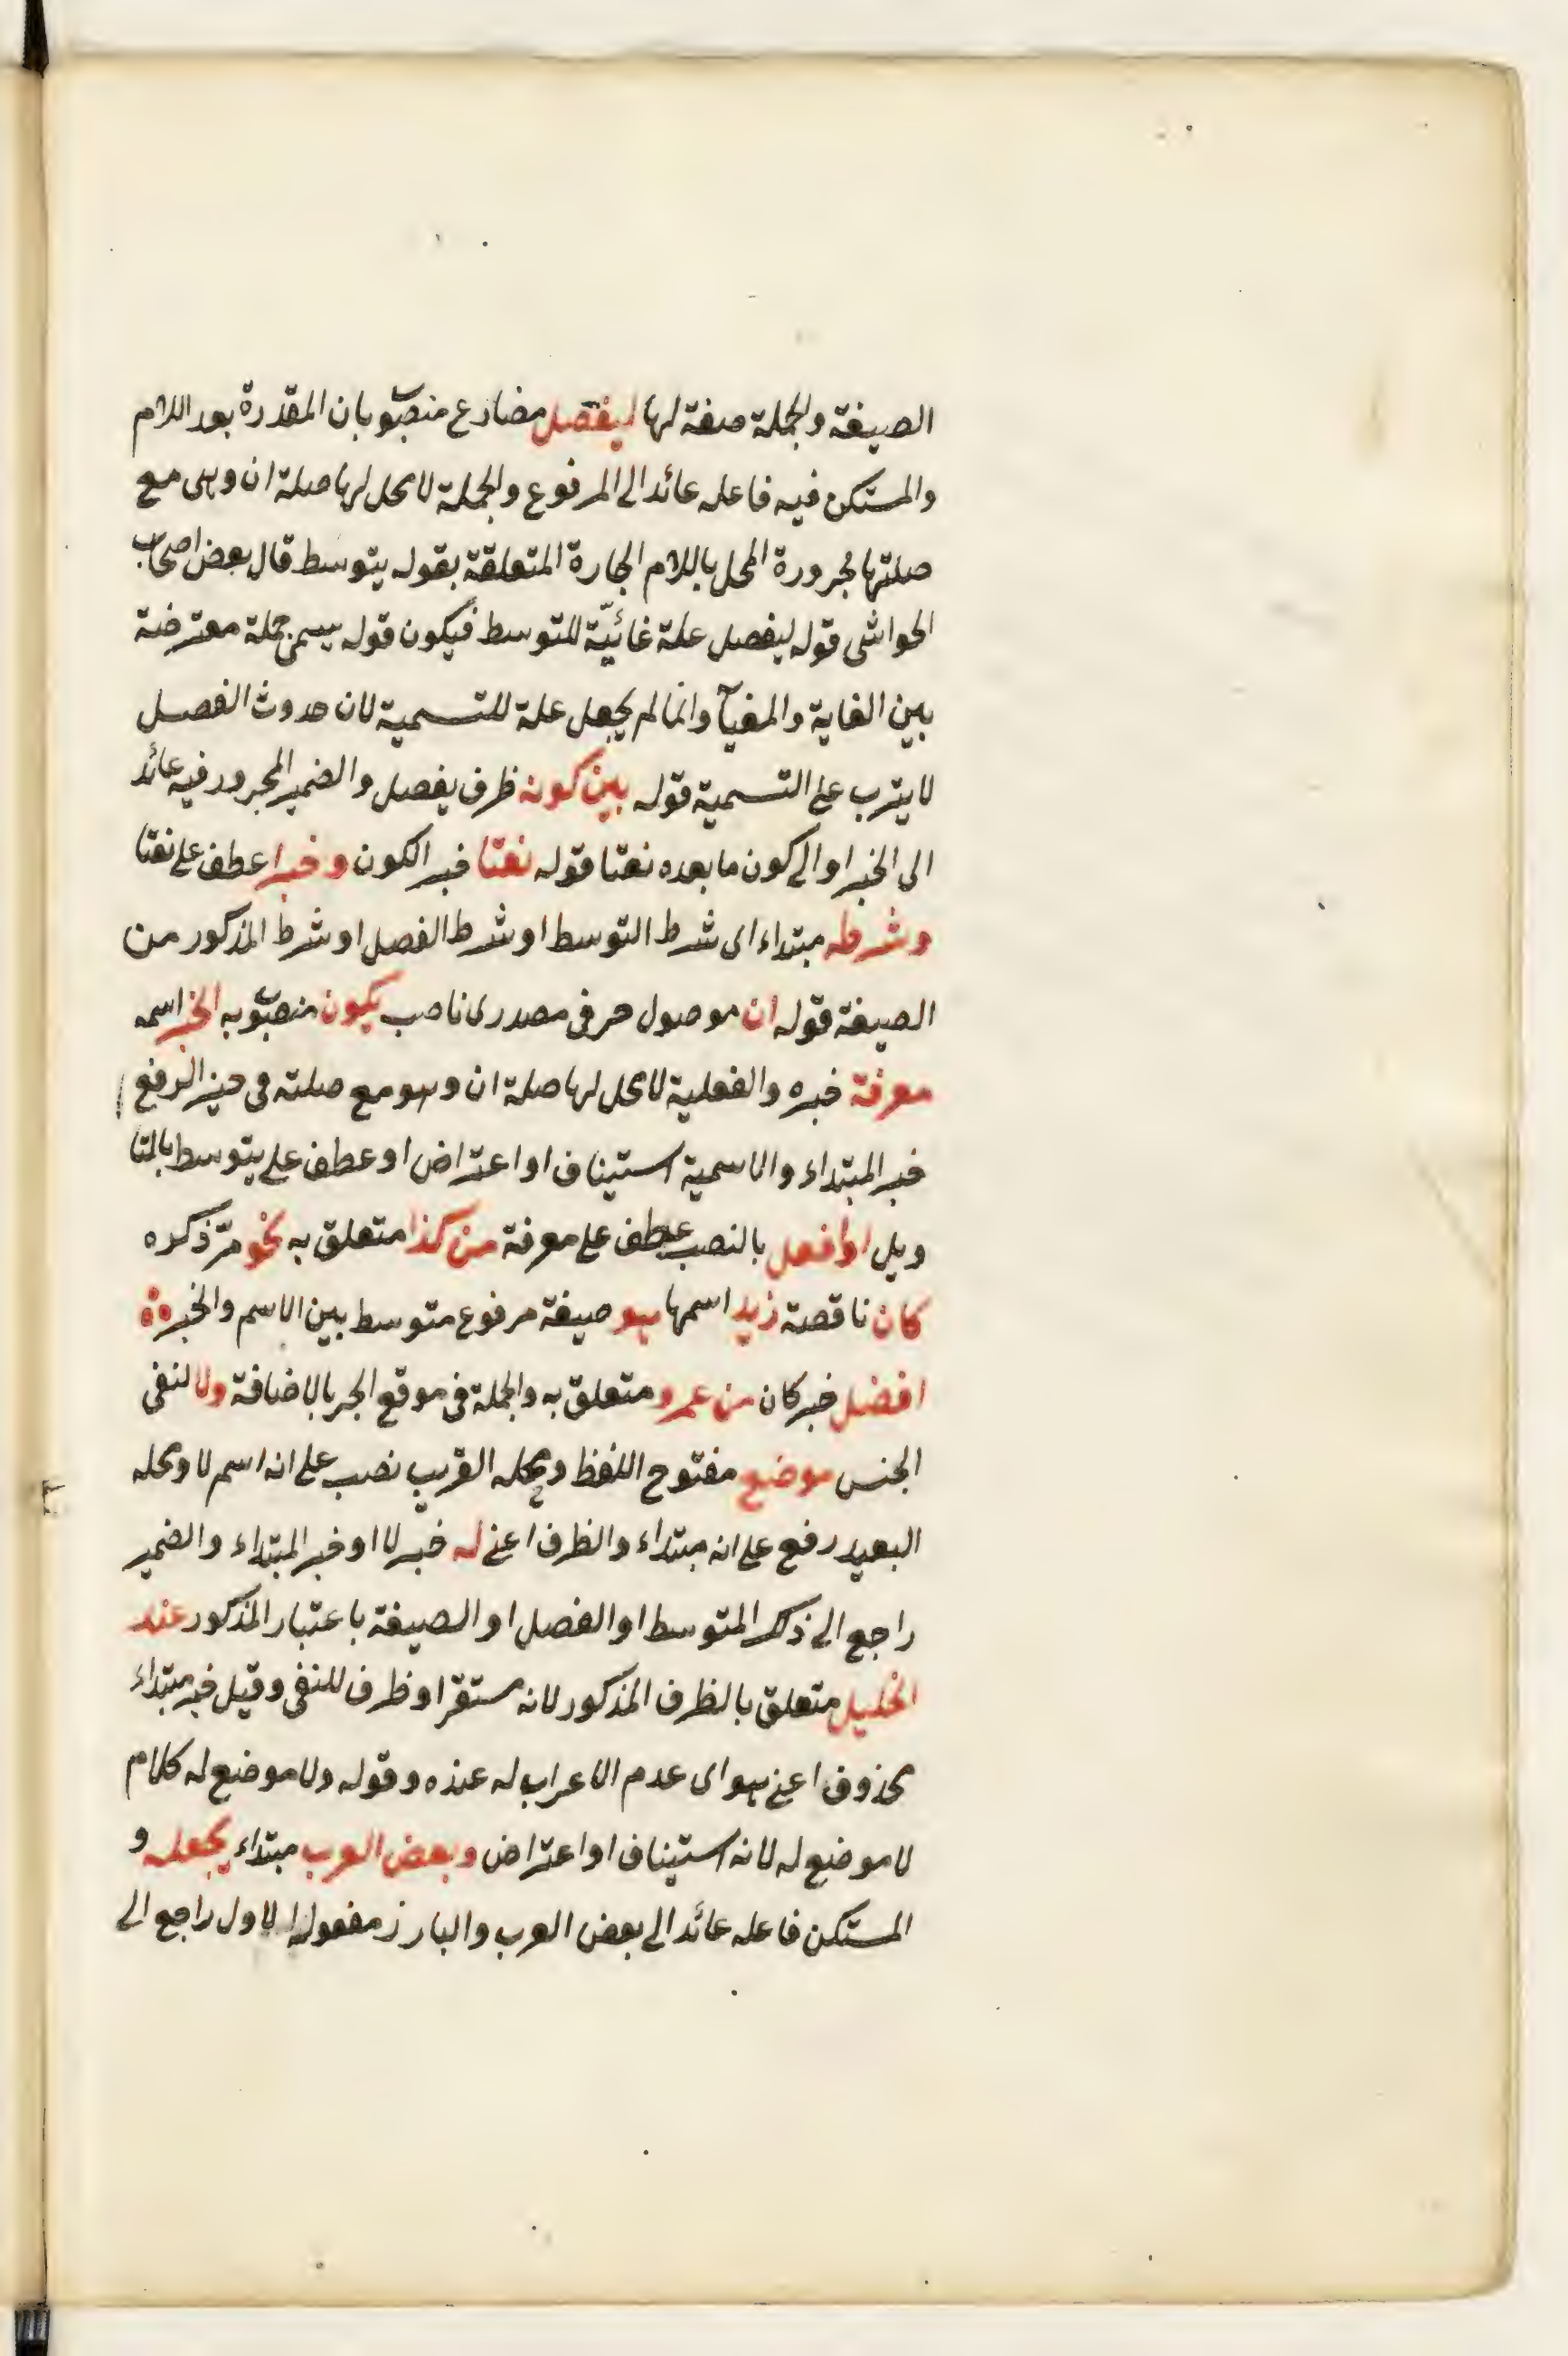 الصيغة والجملة صفة لها ليفصل مضارع منصوب بان المقدرة بعد اللام
والمستكن فيه فاعله عائد الى المرفوع والجملة لا محل لها صلة ان وهى مع
صلتها مجرورة المحل باللام الجارة المتعلقة بقوله يتوسط قال بعض اصحاب
الحواشى قوله ليفصل علة غائيّة للتوسط فيكون قوله يسمى جملة معترضة
بين الغاية والمغيا وانما لم يجعل علة للتسمية لان حدوث الفصل
لا يترب على التسمية قوله بين كونه ظرف يفصل والضمير المجرور فيه عائد
الى الخبر او الى كون ما بعده نعتا قوله نعتا خبر الكون وخبرا عطف على نعتا
وشرطه مبتداء اى شرط التوسط او شرط الفصل او شرط المذكور من
الصيغة قوله ان موصول حرفى مصدرى ناصب يكون منصوب به الخبر اسمه
معرفة خبره والفعلية لا محل لها صلة ان وهو مع صلته فى حيز الرفع
خبر المبتداء والاسمية استيناف او اعتراض او عطف على يتوسط بالتا
ويل او افعل بالنصب عطف على معرفة من كذا متعلق به نحو مرّ ذكره
كان ناقصة زيد اسمها هو صيغة مرفوع متوسط بين الاسم والخبر ه ه
افضل خبر كان من عمرو متعلق به والجملة فى موقع الجر بالاضافة ولا لنفى
الجنس موضع مفتوح اللفظ ومحله القريب نصب على انه اسم لا ومحله
البعيد رفع على انه مبتداء والظرف اعنى له خبر لا او خبر المبتداء والضمير
راجع الى ذكر المتوسط او الفصل او الصيغة باعتبار المذكور عند
الخليل متعلق بالظرف المذكور لانه مستقر او ظرف للنفى وقيل خبر مبتداء
محذوف اعنى هو اى عدم الاعراب له عنده وقوله ولا موضع له كلام
لا موضع له لانه استيناف او اعتراض وبعض العرب مبتداء يجعله و
المستكن فاعله عائد الى بعض العرب والبارز مفعوله الاول راجع الى